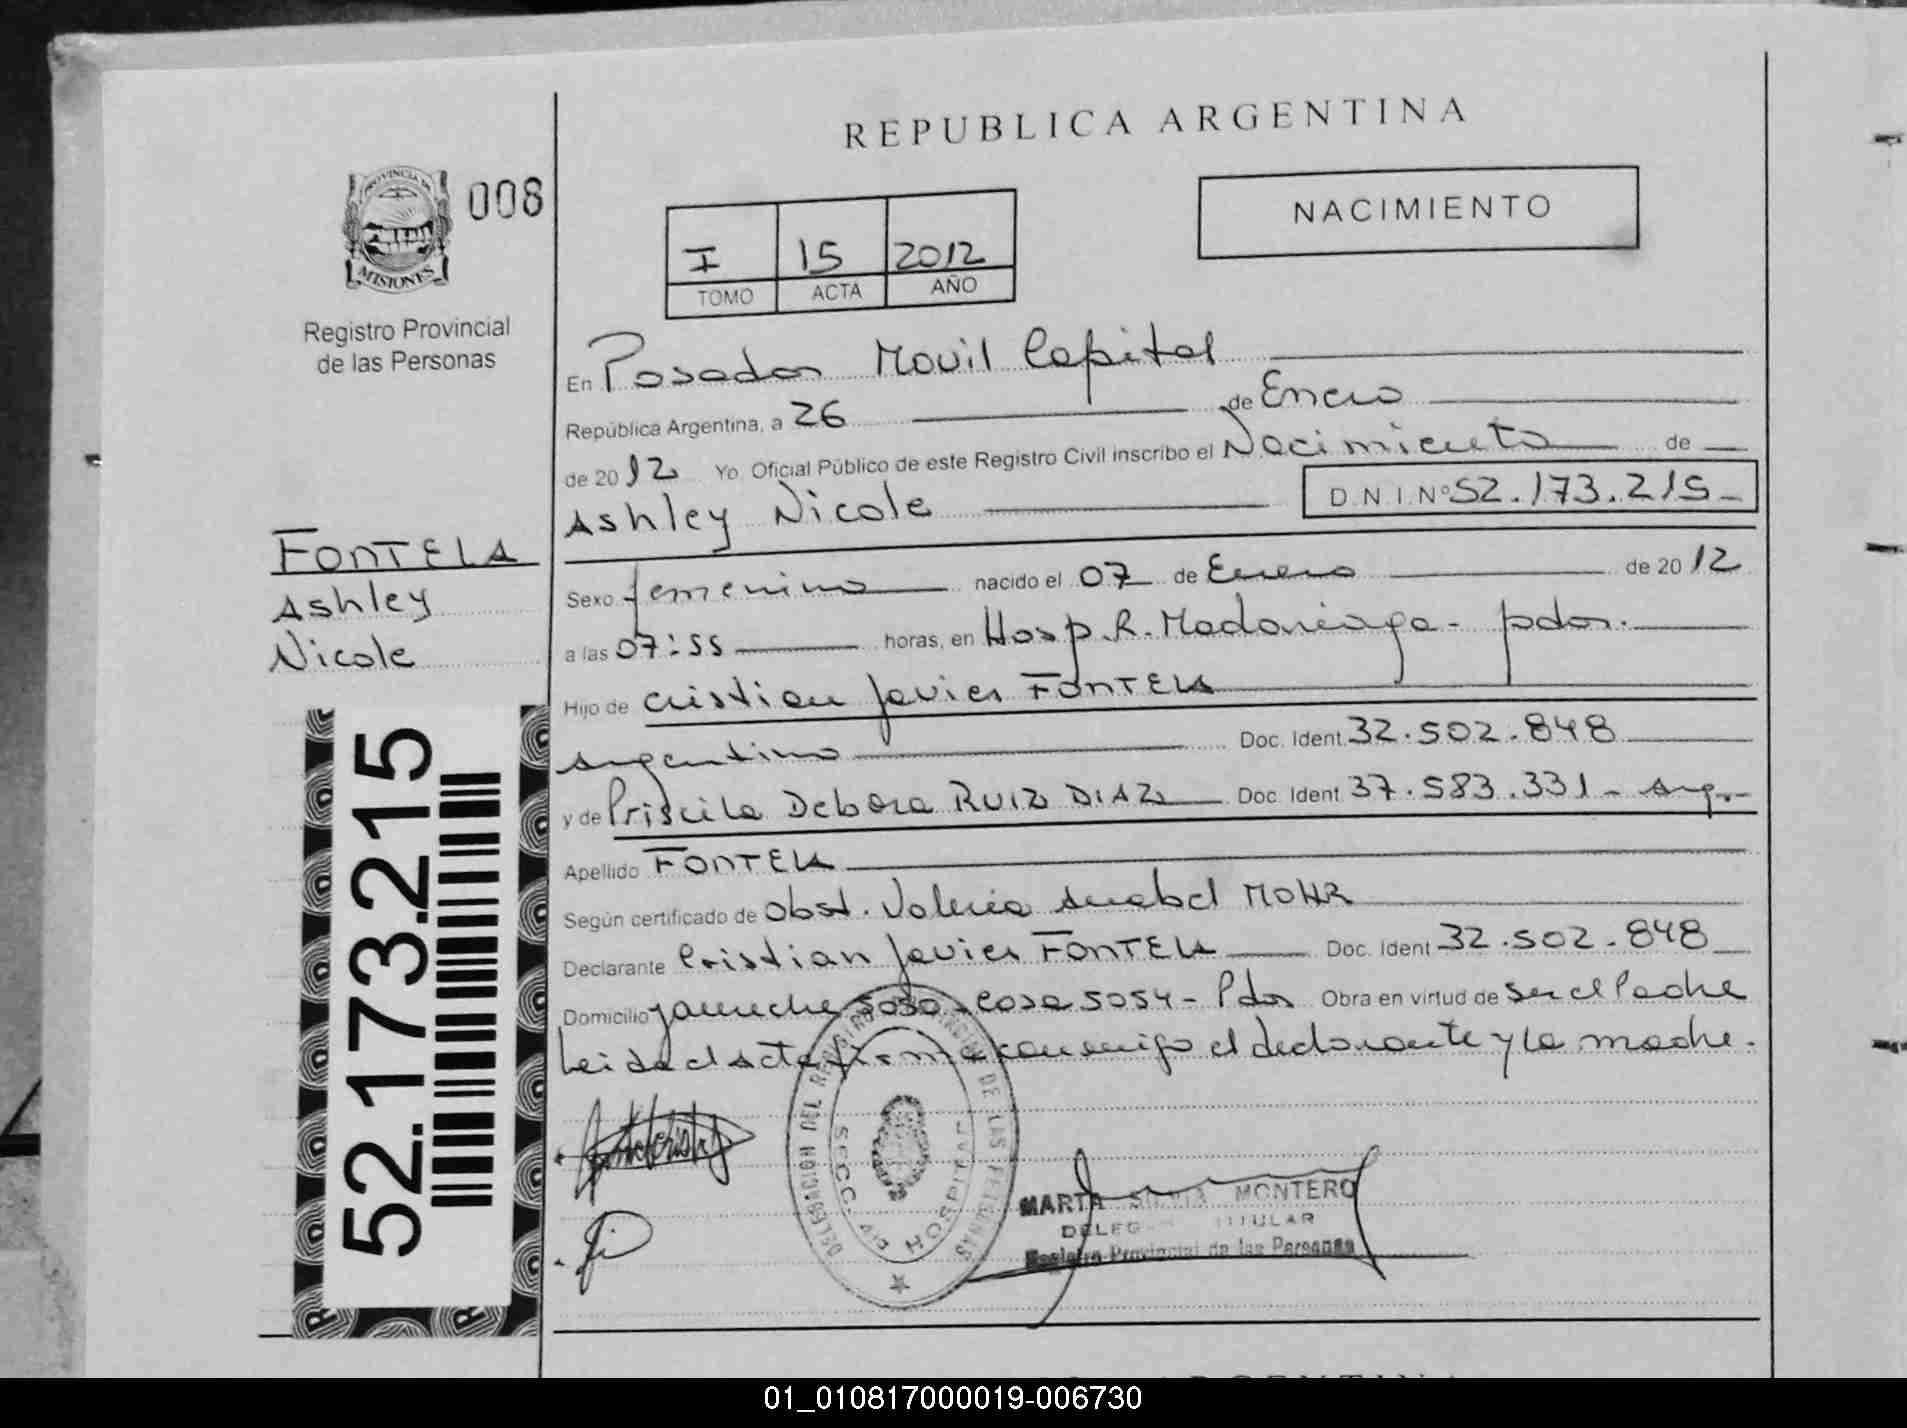 REPUBLICA ARGENTINA
PROVINCIA DE
MISIONES
008
Registro Provincial
de las Personas
NACIMIENTO
I 15 2012
TOMO ACTA AÑO
En Posadas Movil Capital
República Argentina, a 26 de Enero
de 2012 Yo Oficial Público de este Registro Civil inscribo el Nacimiento de
Ashley Nicole D.N.I.Nº 52.173.215-
FONTELA
Ashley
Nicole
Sexo femenino nacido el 07 de Enero de 2012
a las 07:55 horas, en Hosp. R. Madariaga - pdas.
Hijo de Cristian Javier FONTELA
argentino Doc. Ident. 32.502.848
y de Priscila Debora RUIZ DIAZ Doc. Ident 37.583.331 - arg.-
Apellido FONTELA
Según certificado de Obst. Valeria Anabel MOHR
Declarante Cristian Javier FONTELA Doc. Ident 32.502.848
Domicilio 5050 - Casa 5054 - Pdas Obra en virtud de ser el Padre
Leida el acta firma conmigo el declarante y la madre.
52.173.215
DELEGACION DEL REGISTRO PROVINCIAL DE LAS PERSONAS
SECC. HOSPITAL
MARTA SILVIA MONTERO
TITULAR
Registro Provincial de las Personas
01_010817000019-006730